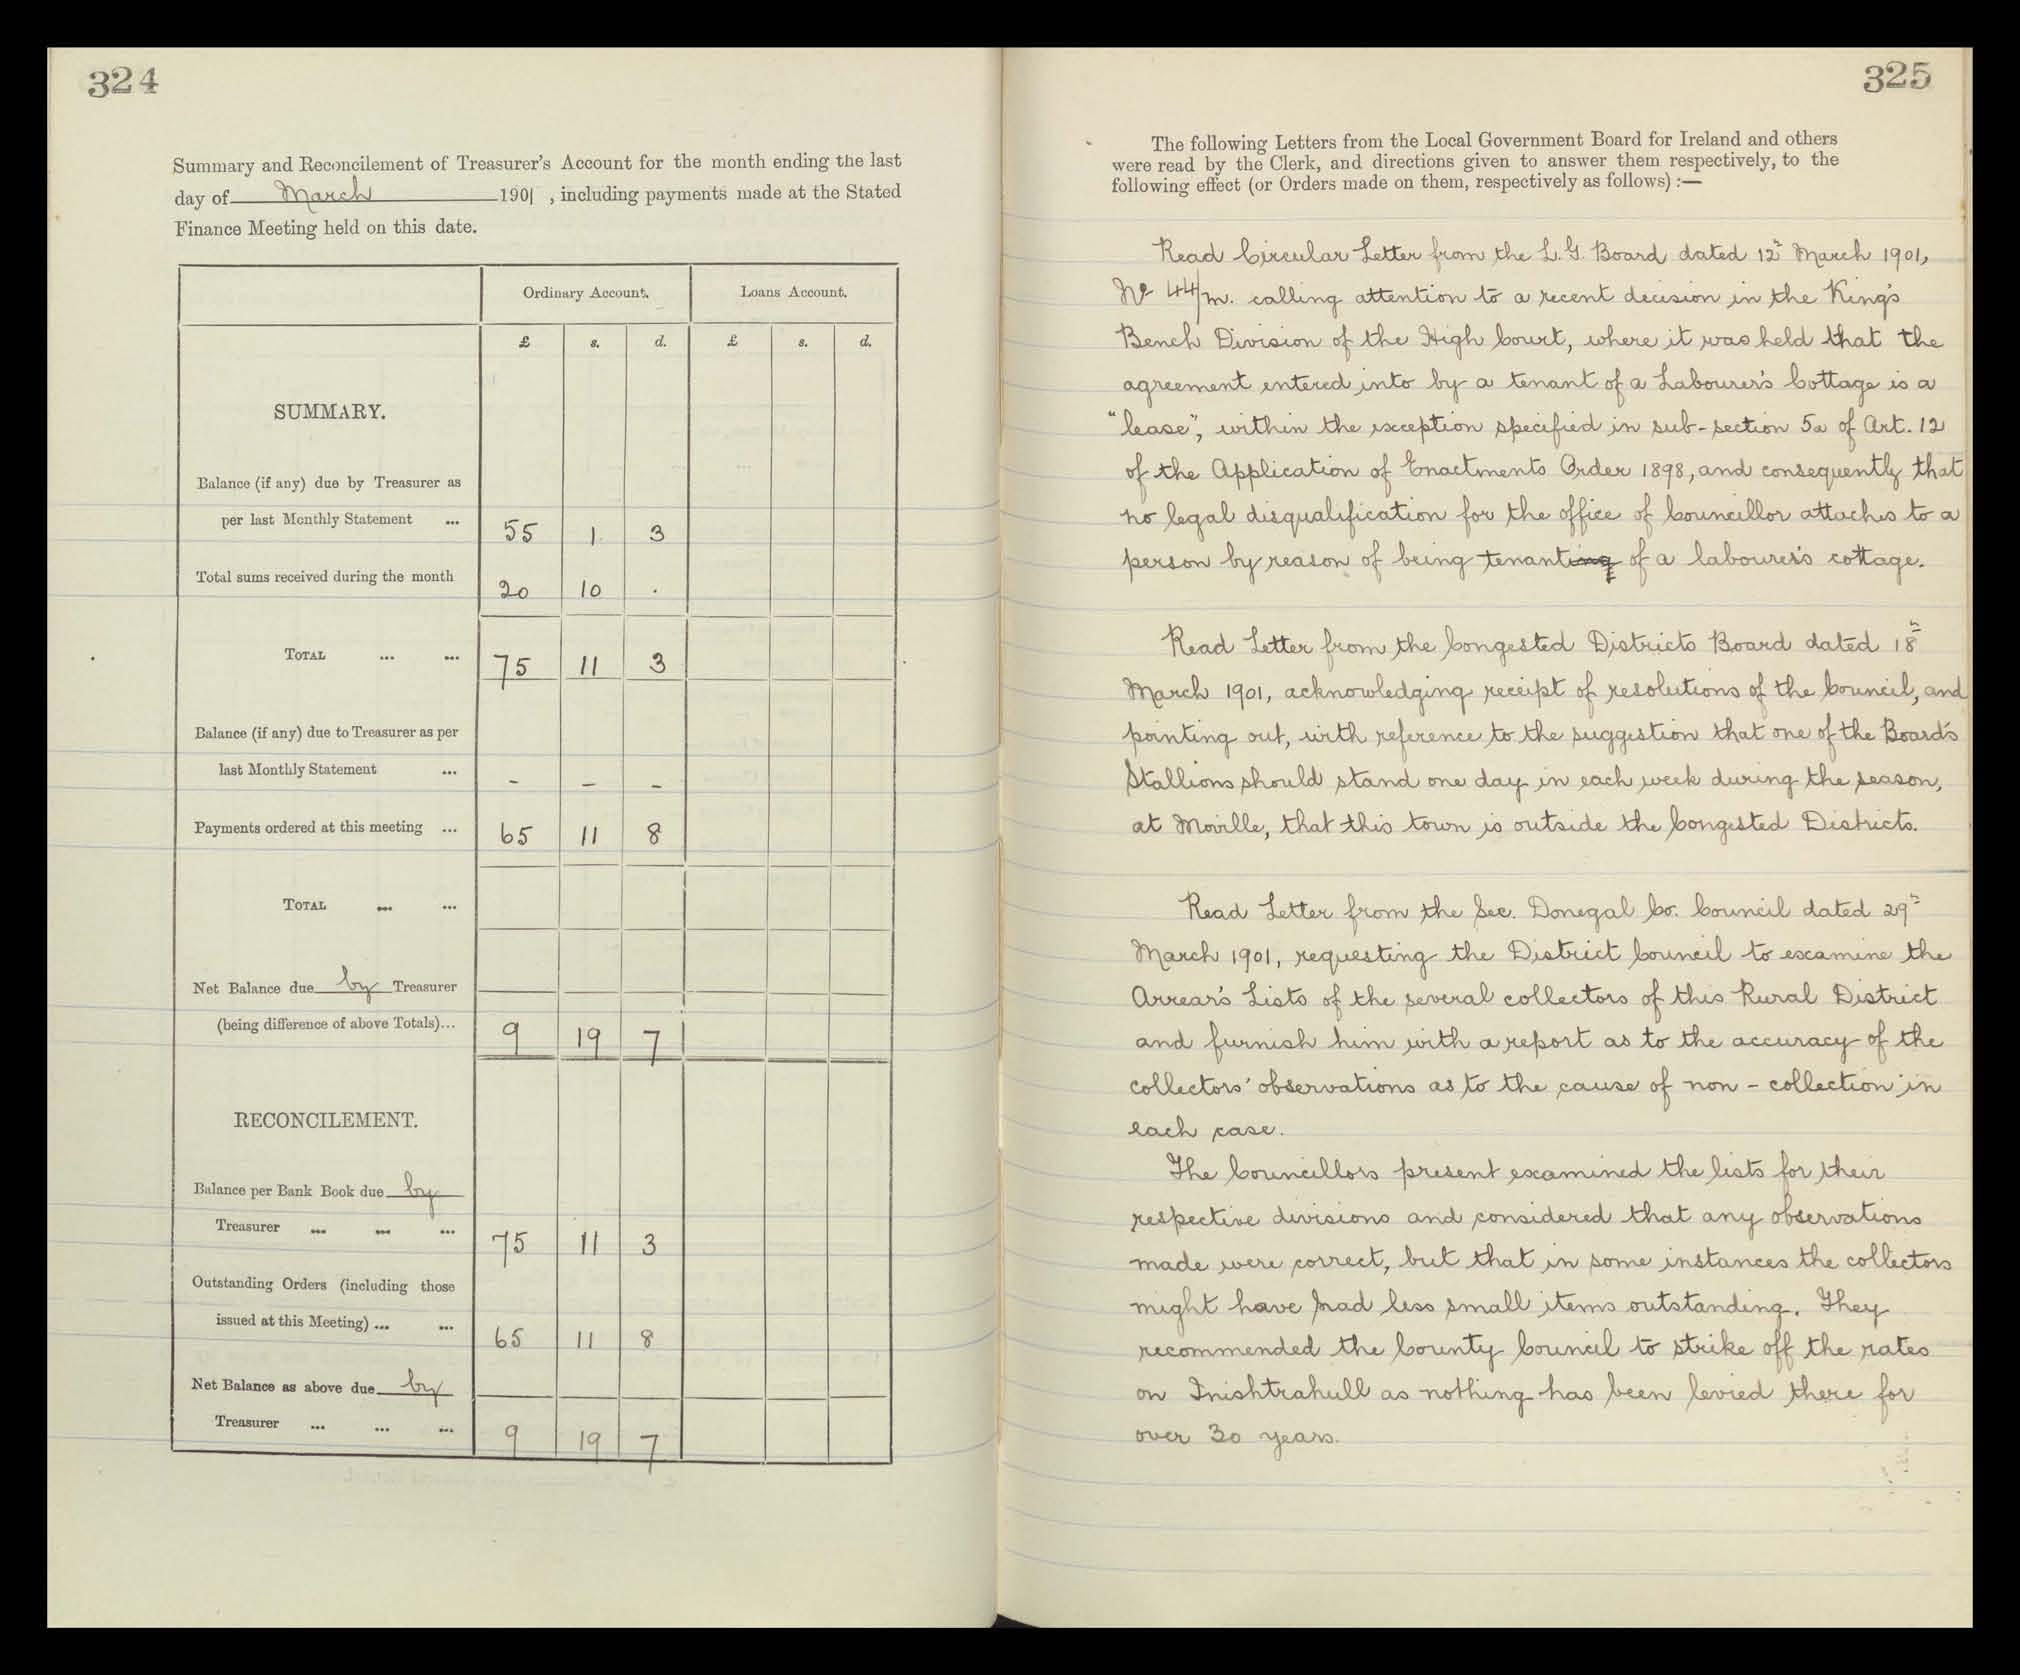 324
Summary and Reconcilement of Treasurer's Account for the month ending the last
day of March 1901, including payments made at the Stated
Finance Meeting held on this date.
Ordinary Account. Loans Account.
£ s. d. £ s. d.
SUMMARY.
Balance (if any) due by Treasurer as
per last Monthly Statement ... 55 1 3
Total sums received during the month 20 10 .
TOTAL ... ... 75 11 3
Balance (if any) due to Treasurer as per
last Monthly Statement ... - - -
Payments ordered at this meeting ... 65 11 8
TOTAL ... ...
Net Balance due by Treasurer
(being difference of above Totals)... 9 19 7
RECONCILEMENT.
Balance per Bank Book due by
Treasurer ... ... ... 75 11 3
Outstanding Orders (including those
issued at this Meeting) ... ... 65 11 8
Net Balance as above due by
Treasurer ... ... ... 9 19 7
325
The following Letters from the Local Government Board for Ireland and others
were read by the Clerk, and directions given to answer them respectively, to the
following effect (or Orders made on them, respectively as follows) :—
Read Circular Letter from the L. G. Board dated 12th March 1901,
No 44/m. calling attention to a recent decision in the King's
Bench Division of the High Court, where it was held that the
agreement entered into by a tenant of a Labourer's Cottage is a
"lease", within the exception specified in sub-section 5a of Art. 12
of the Application of Enactments Order 1898, and consequently that
no legal disqualification for the office of Councillor attaches to a
person by reason of being tenanting of a labourer's cottage.
Read Letter from the Congested Districts Board dated 18th
March 1901, acknowledging receipt of resolutions of the Council, and
pointing out, with reference to the suggestion that one of the Board's
Stallions should stand one day in each week during the season,
at Moville, that this town is outside the Congested Districts.
Read Letter from the Sec. Donegal Co. Council dated 29th
March 1901, requesting the District Council to examine the
Arrear's Lists of the several collectors of this Rural District
and furnish him with a report as to the accuracy of the
collectors' observations as to the cause of non-collection in
each case.
The Councillors present examined the lists for their
respective divisions and considered that any observations
made were correct, but that in some instances the collectors
might have had less small items outstanding. They
recommended the County Council to strike off the rates
on Inishtrahull as nothing has been levied there for
over 30 years.